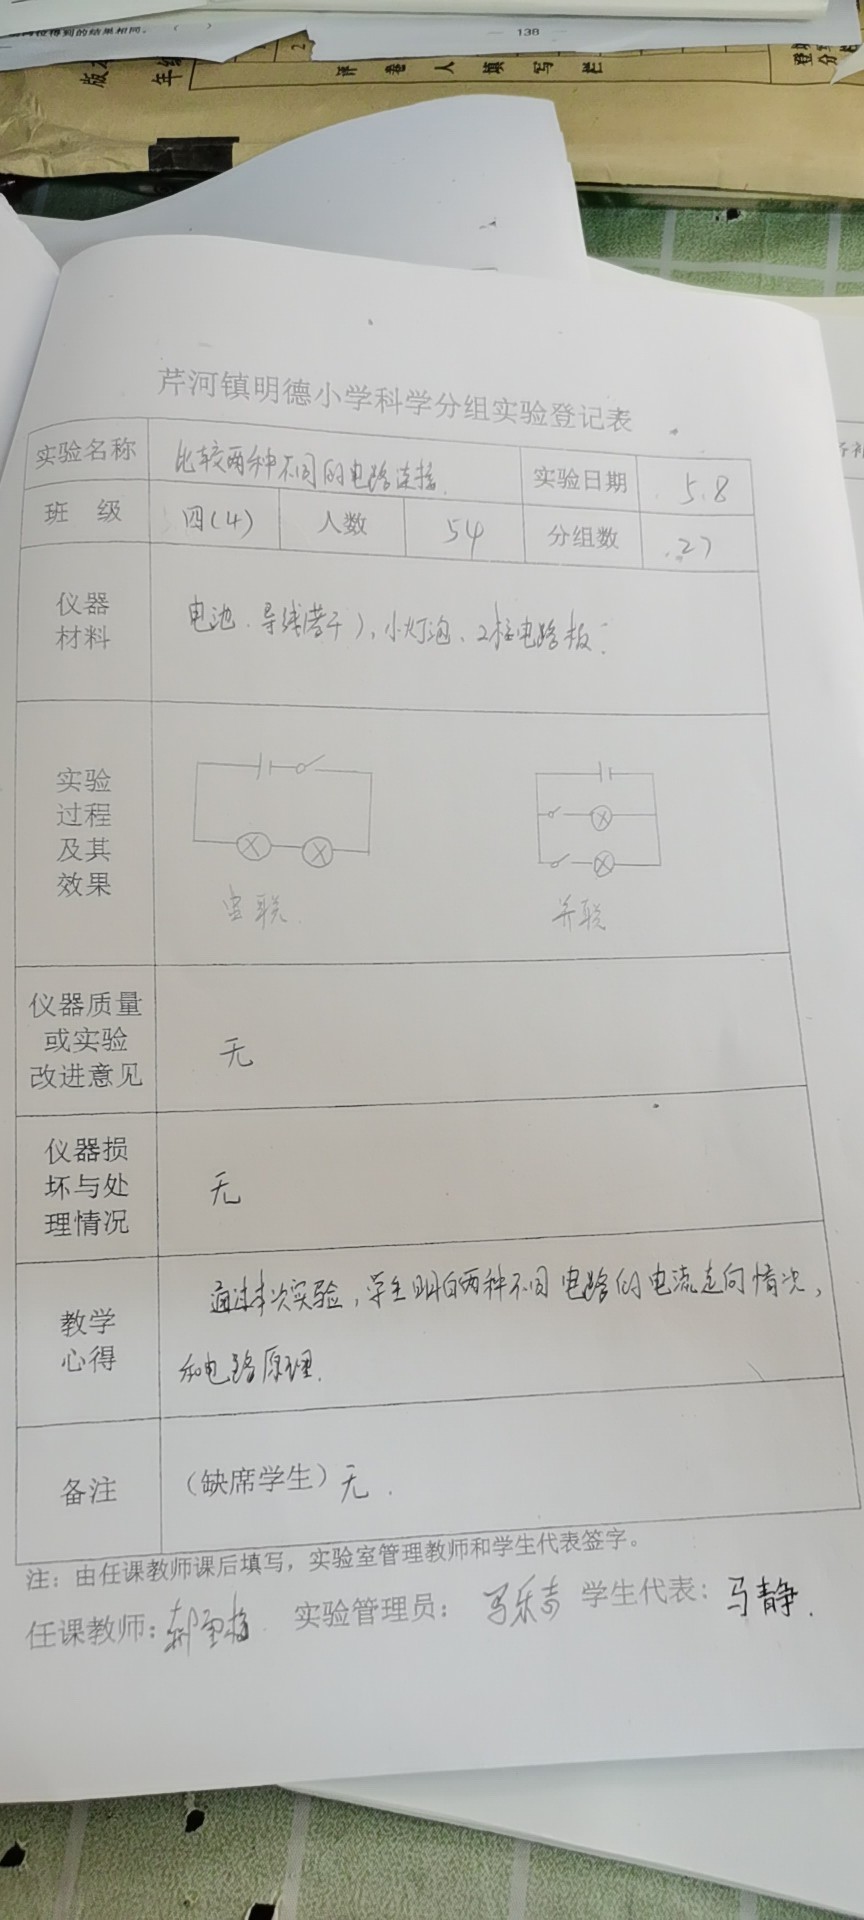 得到的结果相同。（ ）
138
评卷人填写栏
芹河镇明德小学科学分组实验登记表
实验名称 比较两种不同的电路连接. 实验日期 5.8
班级 四(4) 人数 54 分组数 27
仪器材料 电池、导线(若干)、小灯泡、电路板
实验过程及其效果
串联. 并联
仪器质量或实验改进意见 无
仪器损坏与处理情况 无
教学心得 通过本次实验，学生明白两种不同电路的电流走向情况，
和电路原理.
备注 （缺席学生）无.
注：由任课教师课后填写，实验室管理教师和学生代表签字。
任课教师： 实验管理员： 学生代表：马静.